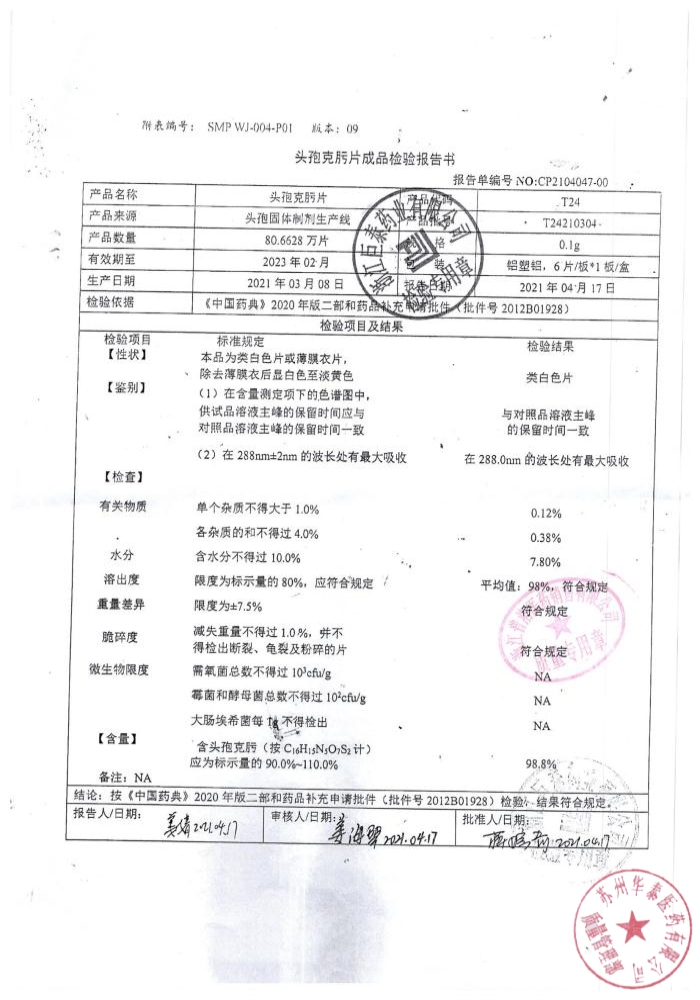 附表编号： SMP WJ-004-P01 版本：09
头孢克肟片成品检验报告书
报告单编号 NO:CP2104047-00
产品名称 头孢克肟片 产品代码 T24
产品来源 头孢固体制剂生产线 产品批号 T24210304
产品数量 80.6628 万片 规 格 0.1g
有效期至 2023 年 02 月 包 装 铝塑铝，6 片/板*1 板/盒
生产日期 2021 年 03 月 08 日 报告日期 2021 年 04 月 17 日
检验依据 《中国药典》2020 年版二部和药品补充申请批件（批件号 2012B01928）
检验项目及结果
检验项目 标准规定 检验结果
【性状】 本品为类白色片或薄膜衣片，
除去薄膜衣后显白色至淡黄色 类白色片
【鉴别】 （1）在含量测定项下的色谱图中，
供试品溶液主峰的保留时间应与 与对照品溶液主峰
对照品溶液主峰的保留时间一致 的保留时间一致
（2）在 288nm±2nm 的波长处有最大吸收 在 288.0nm 的波长处有最大吸收
【检查】
有关物质 单个杂质不得大于 1.0% 0.12%
各杂质的和不得过 4.0% 0.38%
水分 含水分不得过 10.0% 7.80%
溶出度 限度为标示量的 80%，应符合规定 平均值：98%，符合规定
重量差异 限度为±7.5% 符合规定
脆碎度 减失重量不得过 1.0%，并不
得检出断裂、龟裂及粉碎的片 符合规定
微生物限度 需氧菌总数不得过 10³cfu/g NA
霉菌和酵母菌总数不得过 10²cfu/g NA
大肠埃希菌每 1g 不得检出 NA
【含量】 含头孢克肟（按 C₁₆H₁₅N₅O₇S₂ 计）
应为标示量的 90.0%~110.0% 98.8%
备注：NA
结论：按《中国药典》2020 年版二部和药品补充申请批件（批件号 2012B01928）检验，结果符合规定。
报告人/日期： 2021.04.17 审核人/日期： 2021.04.17 批准人/日期： 2021.04.17
检验专用章
质量专用章
苏州华泰医药有限公司
质量管理专用章